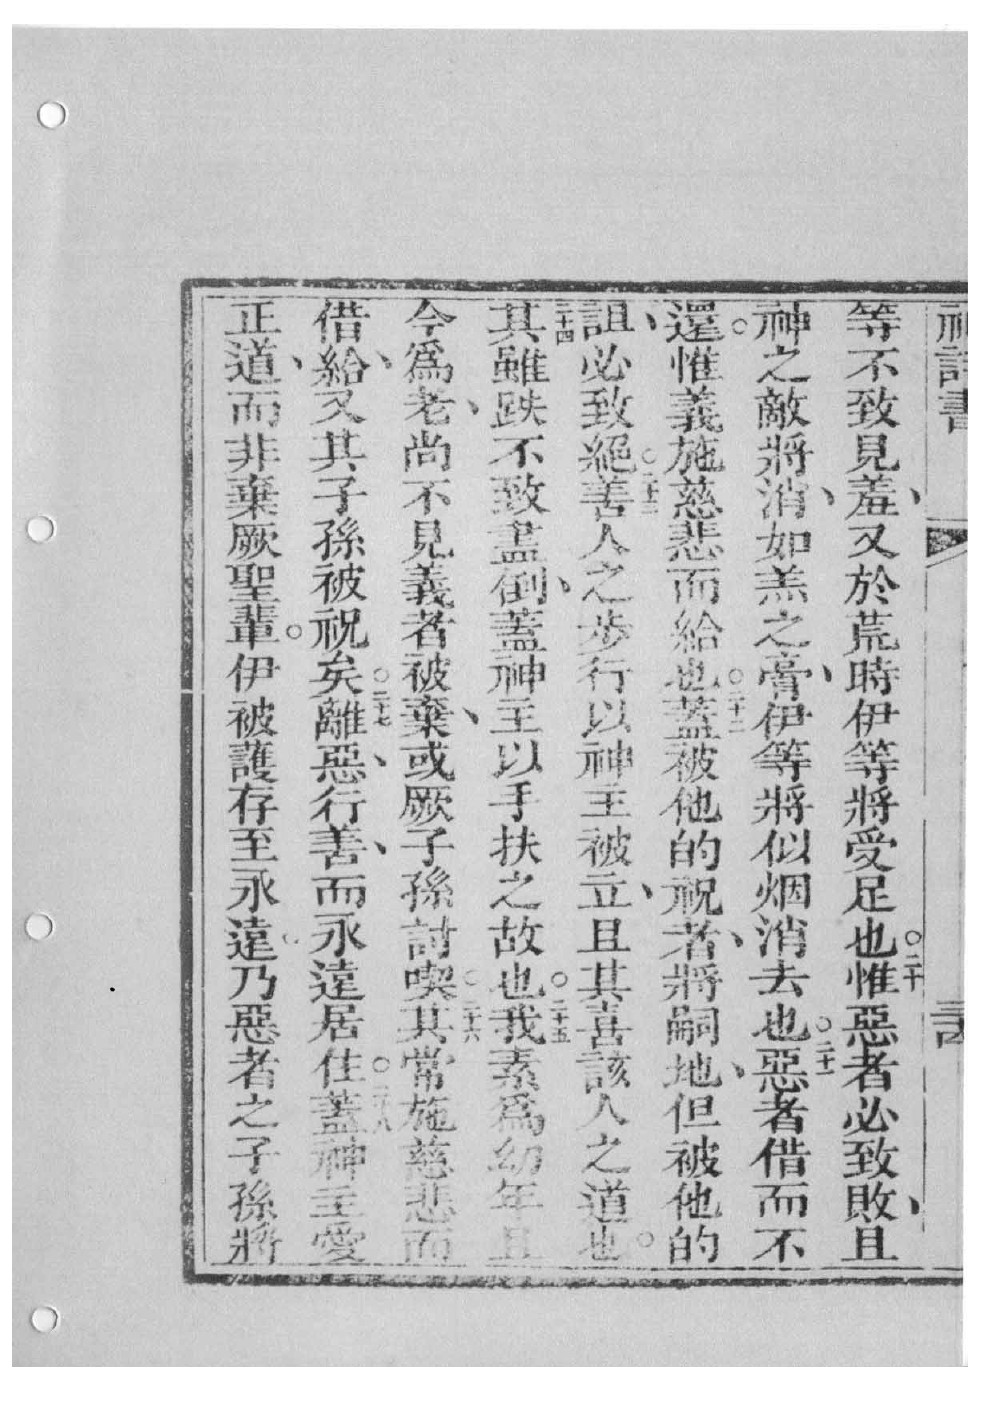 神詩書
等不致見羞、又於荒時伊等將受足也。二十惟惡者必致敗、且
神之敵將消、如羔之膏、伊等將似烟消去也。二十一惡者借而不
還。惟義施慈悲而給也。二十二蓋被他的祝者、將嗣地、但被他的
詛、必致絕。二十三善人之步行以神主被立、且其喜該人之道也。
二十四其雖跌不致盡倒、蓋神主以手扶之故也。二十五我素為幼年且
今為老、尚不見義者被棄、或厥子孫討喫。二十六其常施慈悲而
借給、又其子孫被祝矣。二十七離惡、行善、而永遠居住。二十八蓋神主愛
正道、而非棄厥聖輩。伊被護存至永遠。乃惡者之子孫將